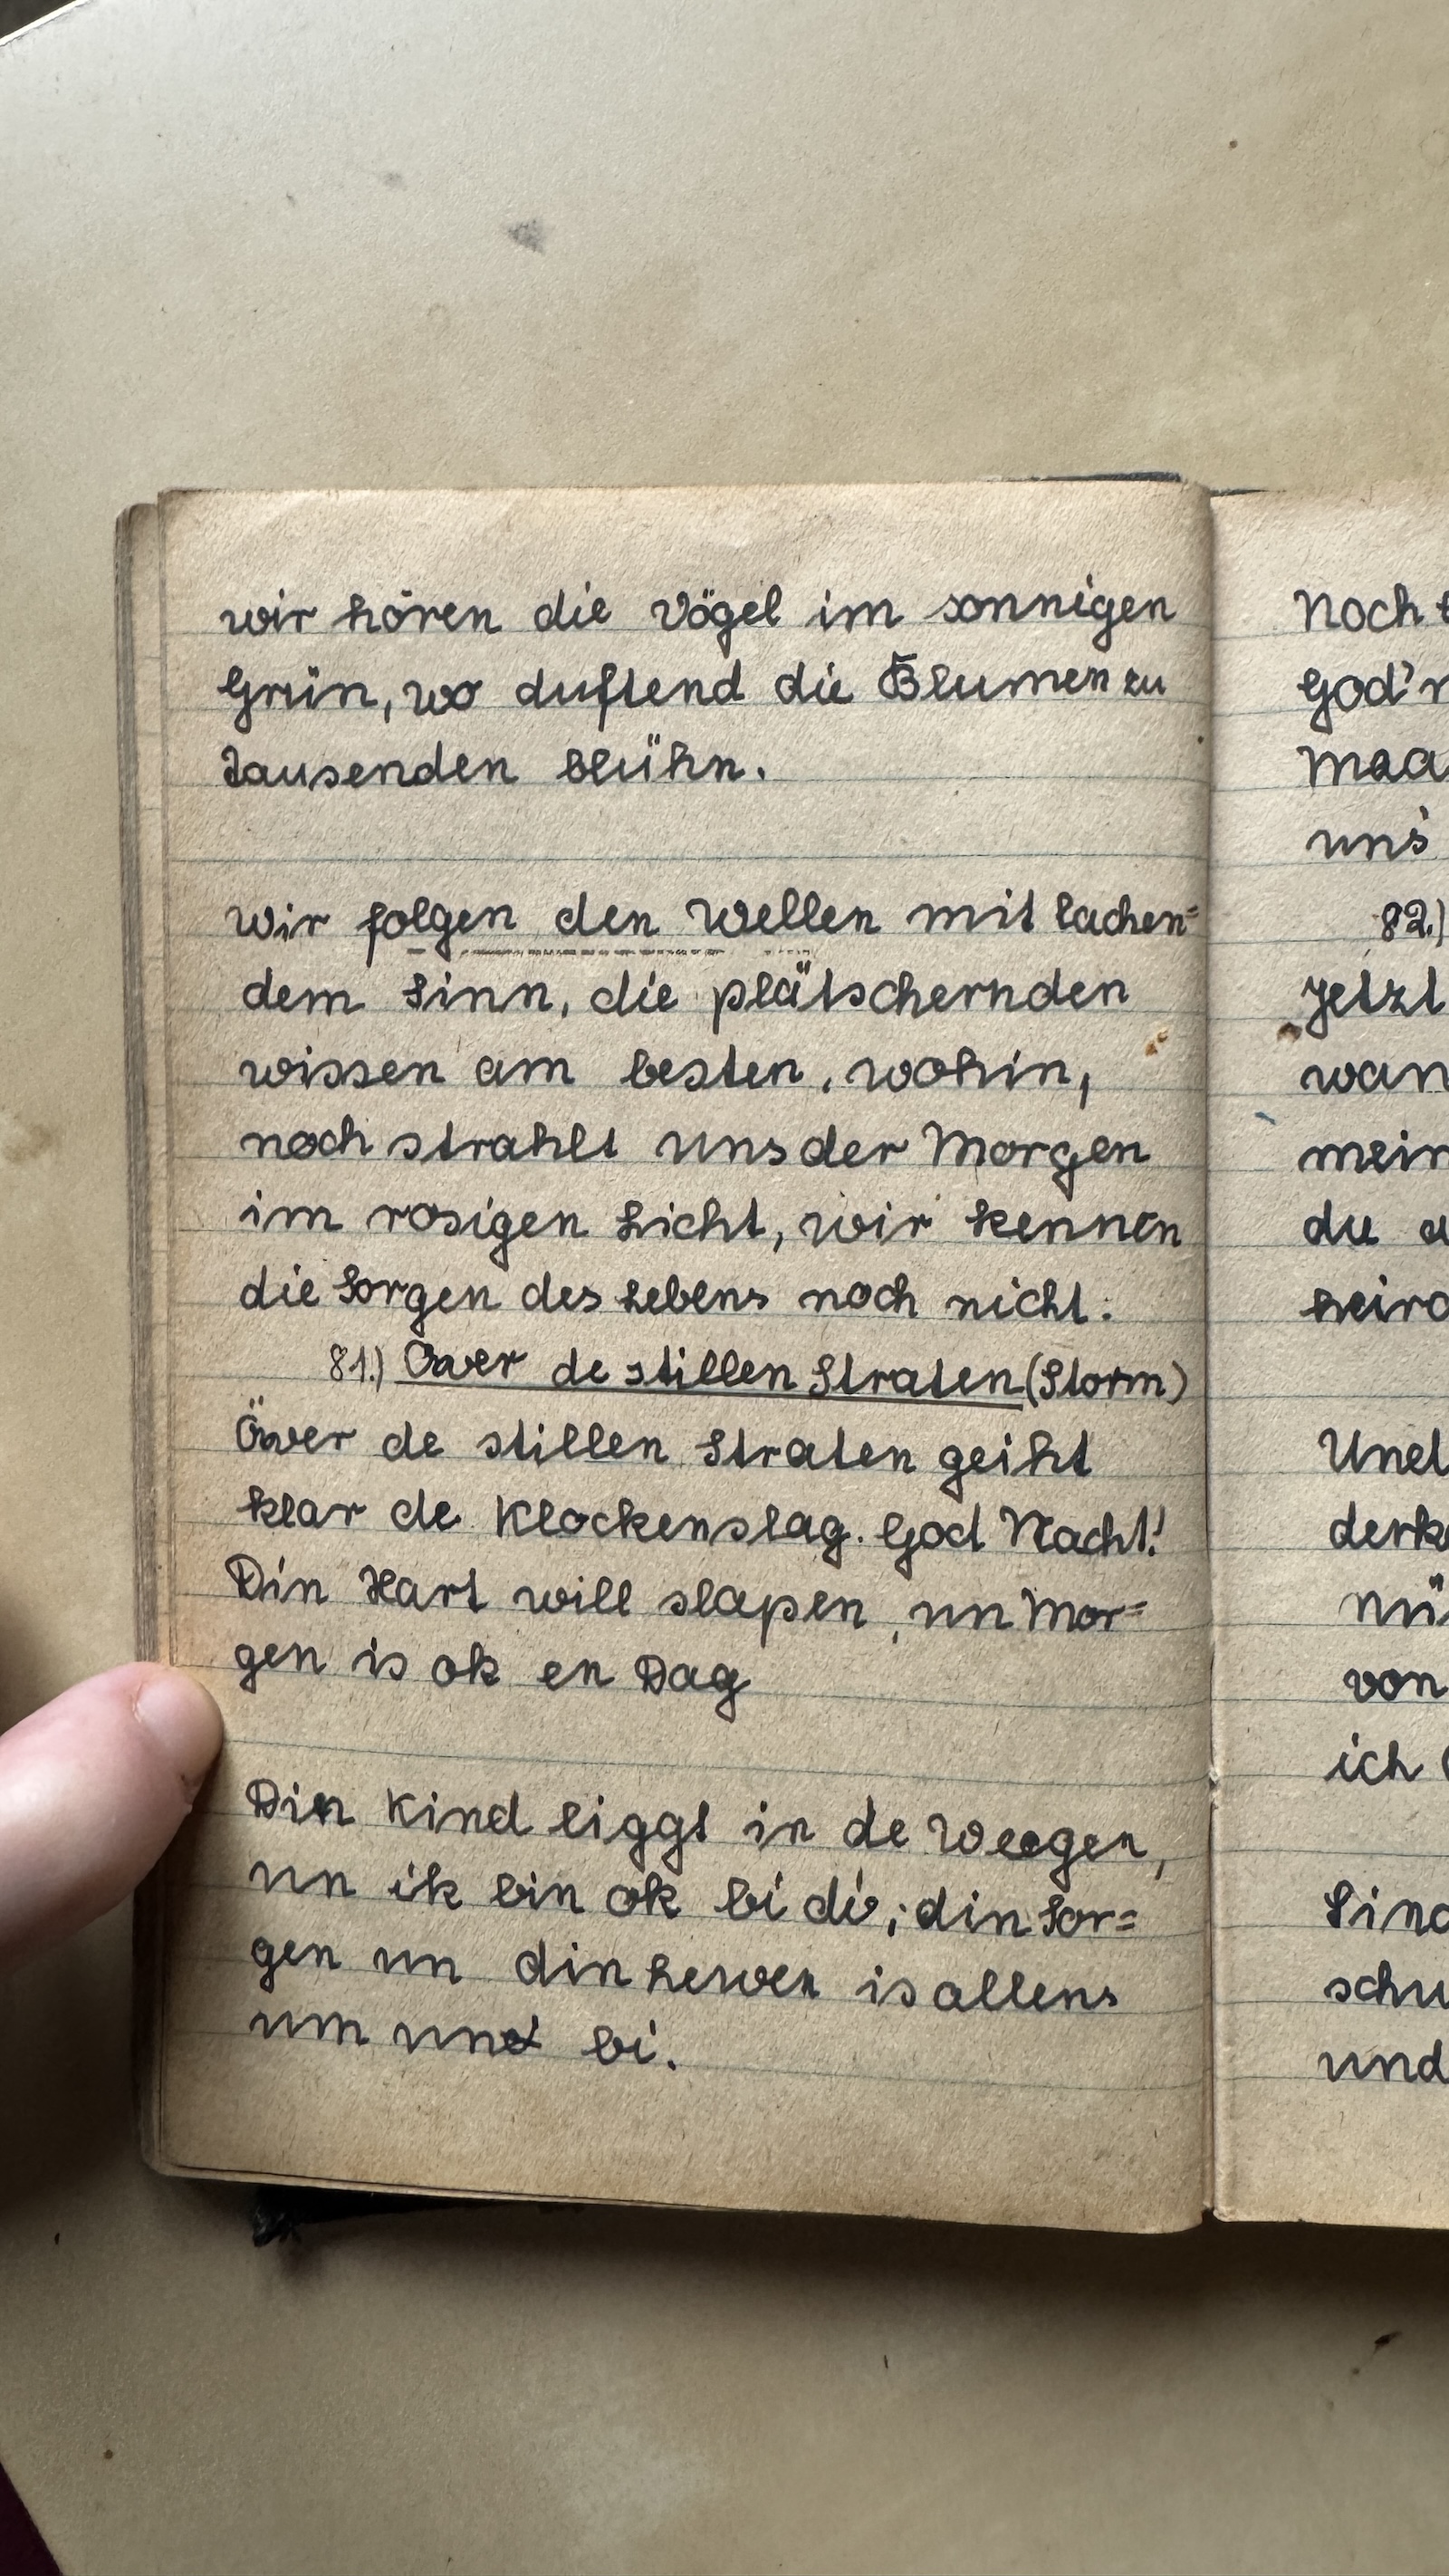 wir hören die Vögel im sonnigen
Grün, wo duftend die Blumen zu
Tausenden blühn.
Wir folgen den Wellen mit lachen=
dem Sinn, die plätschernden
wissen am besten, wohin,
noch strahlt uns der Morgen
im rosigen Licht, wir kennen
die Sorgen des Lebens noch nicht.
81.) Över de stillen Straten (Storm)
Över de stillen Straten geiht
klar de Klockenslag. God Nacht!
Din Hart will slapen, un Mor=
gen is ok en Dag
Din Kind liggt in de Weegen,
un ik bin ok bi di; din Sor=
gen un din Lewen is allens
um und bi.
Noch
God'
Maa
uns
82.)
Jetzt
wan
mein
du
heira
Und
derk
nü
von
ich
Sind
schu
und